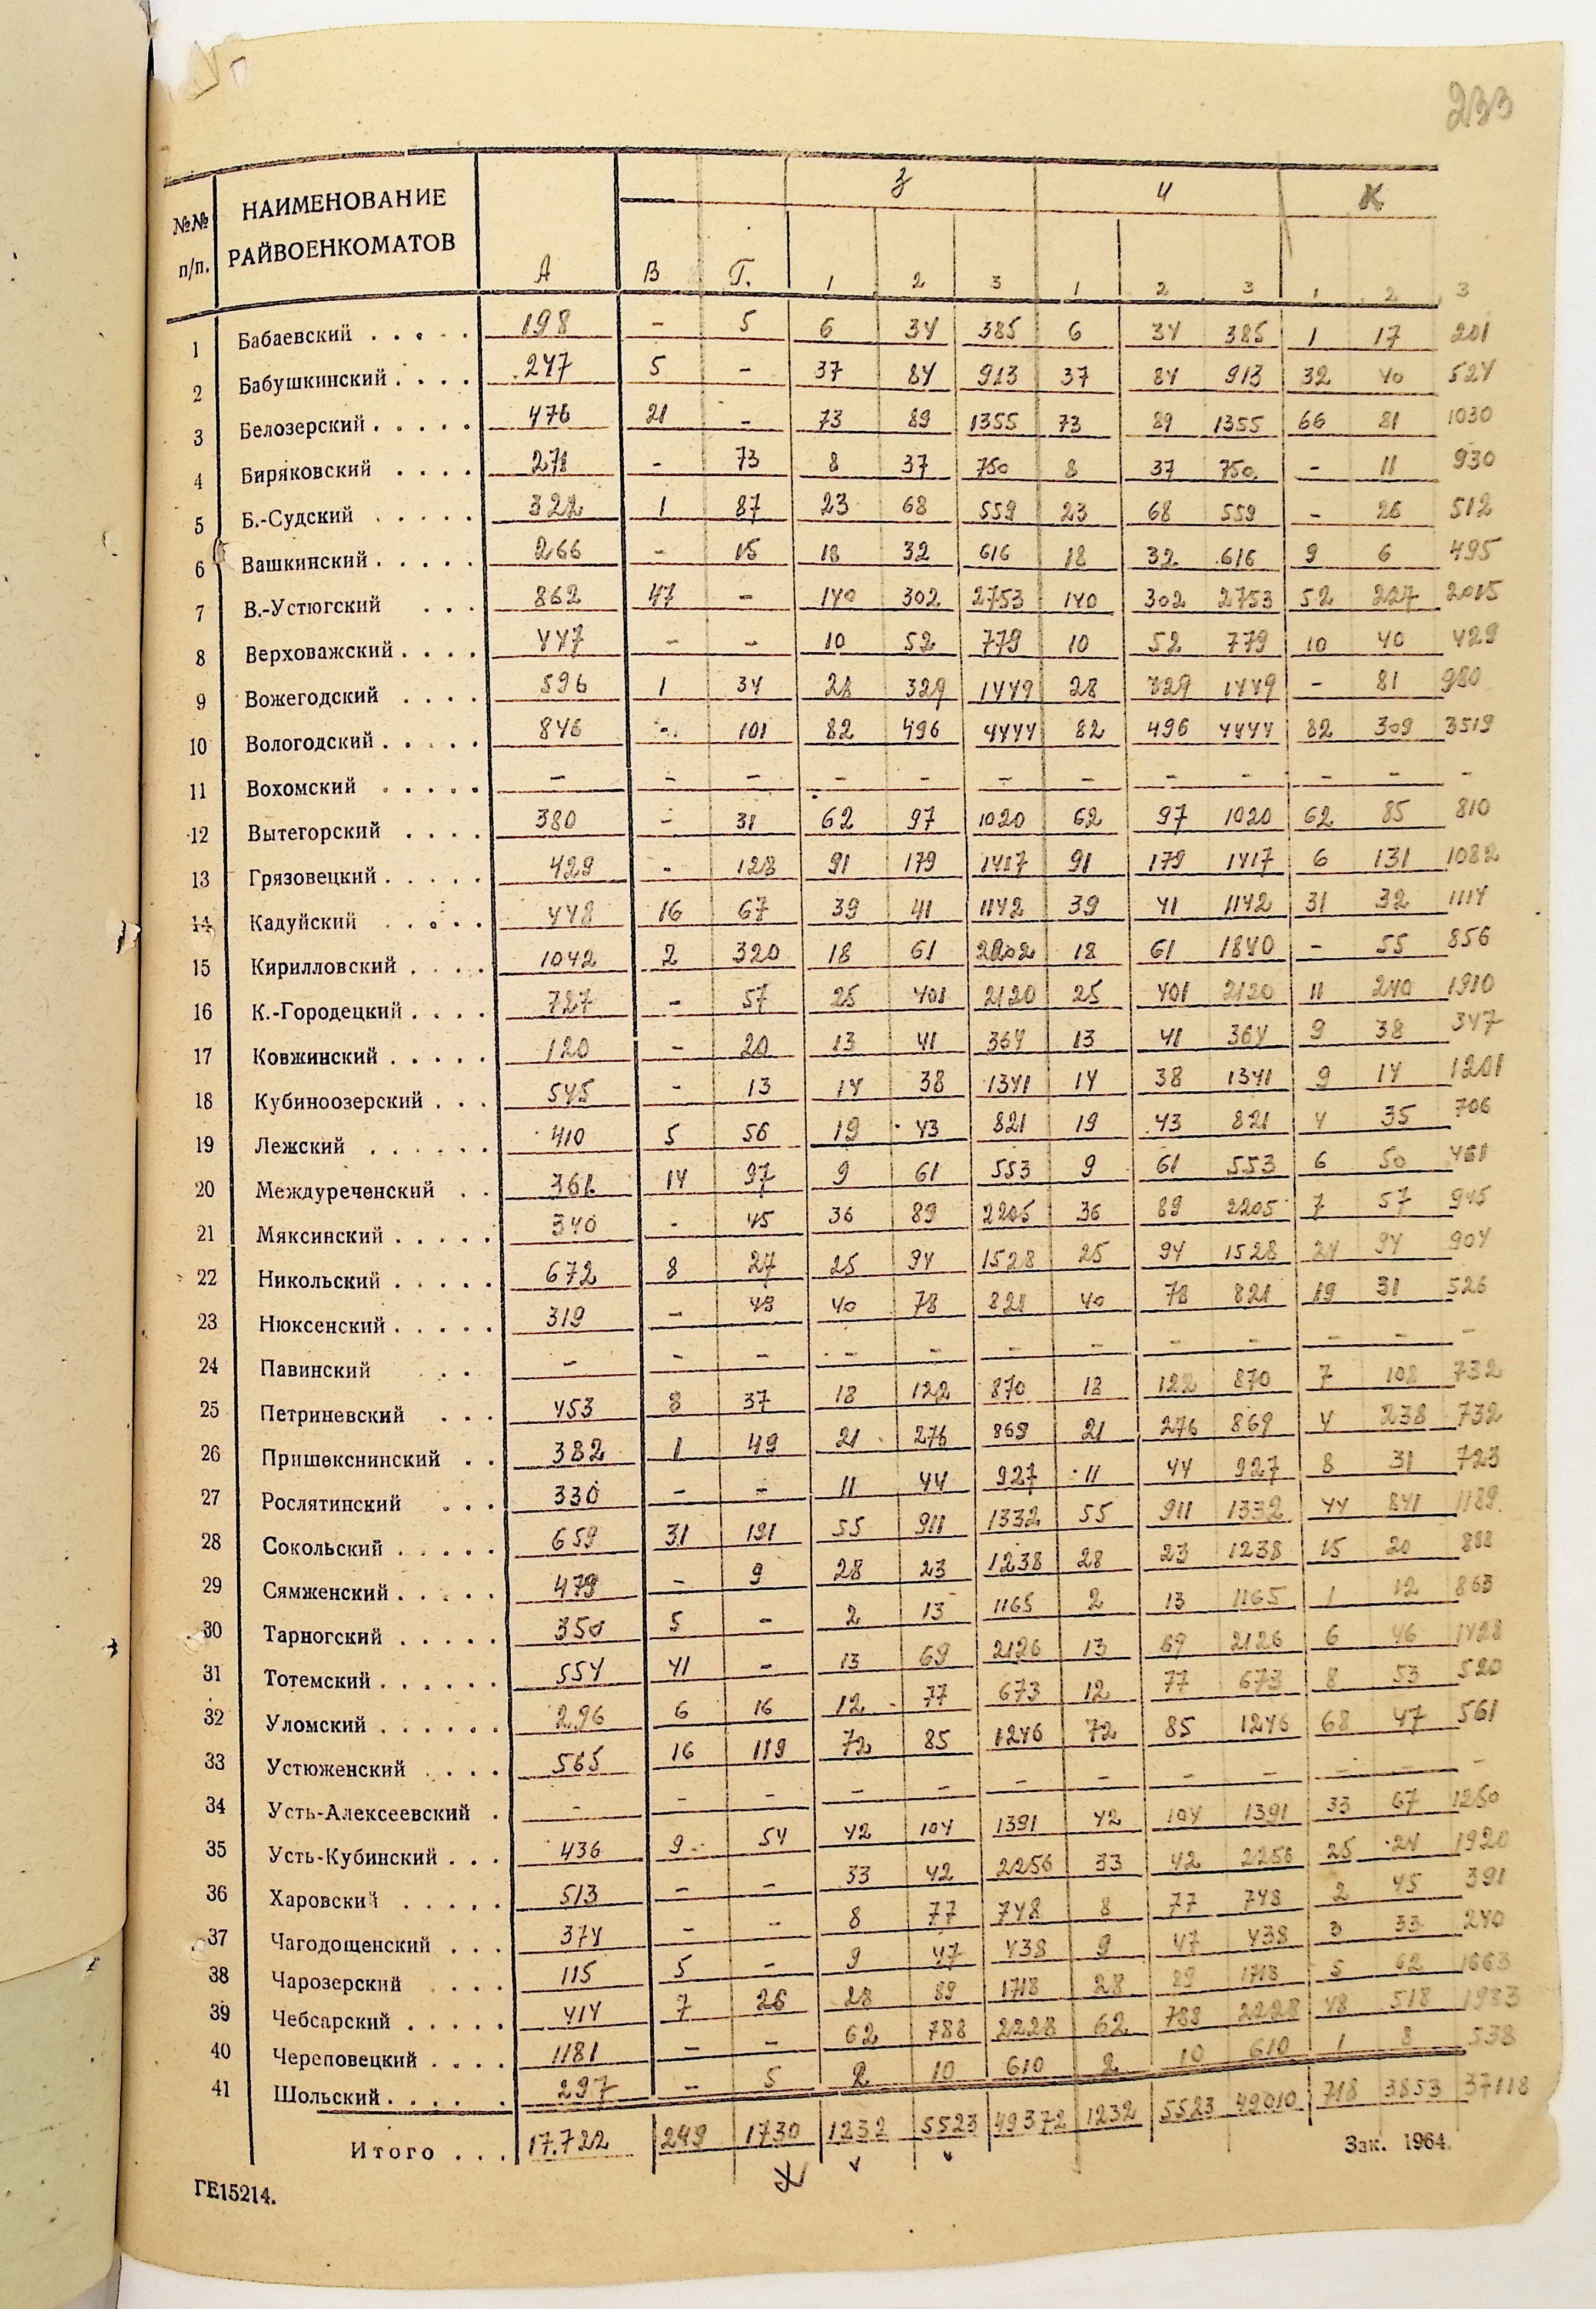 233
№№ п/п. НАИМЕНОВАНИЕ РАЙВОЕНКОМАТОВ А В Г. З И К
1 2 3 1 2 3 1 2 3
1 Бабаевский . . . . . 198 - 5 6 34 385 6 34 385 1 17 201
2 Бабушкинский . . . . 247 5 - 37 84 913 37 84 913 32 40 524
3 Белозерский . . . . . 476 21 - 73 89 1355 73 89 1355 66 81 1030
4 Биряковский . . . . 271 - 73 8 37 750 8 37 750 - 11 930
5 Б.-Судский . . . . . 322 1 87 23 68 559 23 68 559 - 26 512
6 Вашкинский . . . . . 266 - 15 18 32 616 18 32 616 9 6 495
7 В.-Устюгский . . . 862 47 - 140 302 2753 140 302 2753 52 227 2015
8 Верховажский . . . . 447 - - 10 52 779 10 52 779 10 40 429
9 Вожегодский . . . . 596 1 34 28 329 1449 28 329 1449 - 81 980
10 Вологодский . . . . . 846 - 101 82 496 4444 82 496 4444 82 309 3519
11 Вохомский . . . . . - - - - - - - - - - - -
12 Вытегорский . . . . 380 - 31 62 97 1020 62 97 1020 62 85 810
13 Грязовецкий . . . . . 429 - 128 91 179 1417 91 179 1417 6 131 1082
14 Кадуйский . . . . . 448 16 67 39 41 1142 39 41 1142 31 32 1114
15 Кирилловский . . . . 1042 2 320 18 61 2202 18 61 1840 - 55 856
16 К.-Городецкий . . . . 727 - 57 25 401 2120 25 401 2120 11 240 1910
17 Ковжинский . . . . . 120 - 20 13 41 364 13 41 364 9 38 347
18 Кубиноозерский . . . 545 - 13 14 38 1341 14 38 1341 9 14 1201
19 Лежский . . . . . . 410 5 56 19 43 821 19 43 821 4 35 706
20 Междуреченский . . 361 14 97 9 61 553 9 61 553 6 50 461
21 Мяксинский . . . . . 340 - 45 36 89 2205 36 89 2205 7 57 945
22 Никольский . . . . . 672 8 27 25 94 1528 25 94 1528 24 94 904
23 Нюксенский . . . . . 319 - 49 40 78 821 40 78 821 19 31 526
24 Павинский . . - - - - - - - - - - - -
25 Петриневский . . . 453 8 37 18 122 870 18 122 870 7 108 732
26 Пришекснинский . . 382 1 49 21 276 869 21 276 869 4 238 732
27 Рослятинский . . . 330 - - 11 44 927 11 44 927 8 31 723
28 Сокольский . . . . . 659 31 191 55 911 1332 55 911 1332 44 841 1189
29 Сямженский . . . . . 479 - 9 28 23 1238 28 23 1238 15 20 888
30 Тарногский . . . . . 350 5 - 2 13 1165 2 13 1165 1 12 863
31 Тотемский . . . . . . 554 41 - 13 69 2126 13 69 2126 6 46 1428
32 Уломский . . . . . . 296 6 16 12 77 673 12 77 673 8 53 520
33 Устюженский . . . . 565 16 119 72 85 1246 72 85 1246 68 47 561
34 Усть-Алексеевский . - - - - - - - - - - - -
35 Усть-Кубинский . . . 436 9 54 42 104 1391 42 104 1391 33 67 1250
36 Харовский . . . . . 513 - - 33 42 2256 33 42 2256 25 24 1920
37 Чагодощенский . . . 374 - - 8 77 748 8 77 748 2 45 391
38 Чарозерский . . . . 115 5 - 9 47 438 9 47 438 3 33 240
39 Чебсарский . . . . . 414 7 26 28 89 1718 28 89 1718 5 62 1663
40 Череповецкий . . . . 1181 - - 62 788 2228 62 788 2228 48 518 1983
41 Шольский . . . . . . 297 - 5 2 10 610 2 10 610 1 8 538
Итого . . . 17.722 249 1730 1232 5523 49372 1232 5523 49010 718 3853 37118
Зак. 1964.
ГЕ15214.